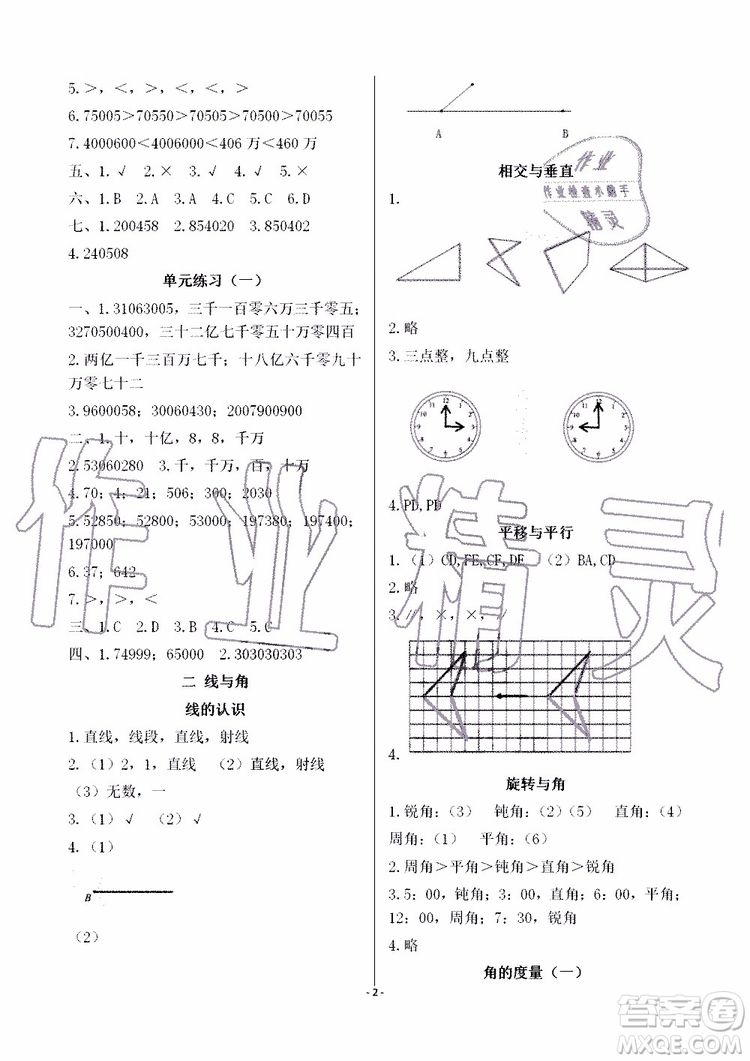 5.＞，＜，＞，＜，＜，＞
6.75005＞70550＞70505＞70500＞70055
7.4000600＜4006000＜406 万＜460 万
五、1.√ 2.× 3.× 4.√ 5.√
六、1.B 2.A 3.A 4.C 5.A
七、1.200458 2.854020 3.850402
4.240508
单元练习（一）
一、1.31063005，三千一百零六万三千零五；
3270500400，三十二亿七千零五十万零四百
2.两亿一千三百万七千；十八亿六千零九十
万零七十二
3.9600058；30060430；2007900900
二、1.十，十亿，8，8，千万
2.53060280 3.千，千万，百，十万
4.70；4；21；506；300；2030
5.52850；52800；50000；197380；197400；
197000
6.37；642
7.＞，＞，＜
三、1.C 2.D 3.A 4.C 5.C
四、1.74999；65000 2.303030303
二 线与角
线的认识
1.直线，线段，直线，射线
2.（1）2，1，直线 （2）直线，射线
（3）无数，一
3.（1）√ （2）√
4.（1）
B
（2）
A B
相交与垂直
1.
2.略
3.三点整，九点整
4.PD,PD
平移与平行
1.（1）CD,FE,CF,DE （2）BA,CD
2.略
3.∥，×，×，∥
4.
旋转与角
1.锐角：（3） 钝角：（2）（5） 直角：（4）
周角：（1） 平角：（6）
2.周角＞平角＞钝角＞直角＞锐角
3.5：00，钝角；9：00，直角；6：00，平角；
12：00，周角；7：30，锐角
4.略
角的度量（一）
- 2 -
作业
作业检查小助手
精灵
作业精灵
答案圈
MXQE.COM